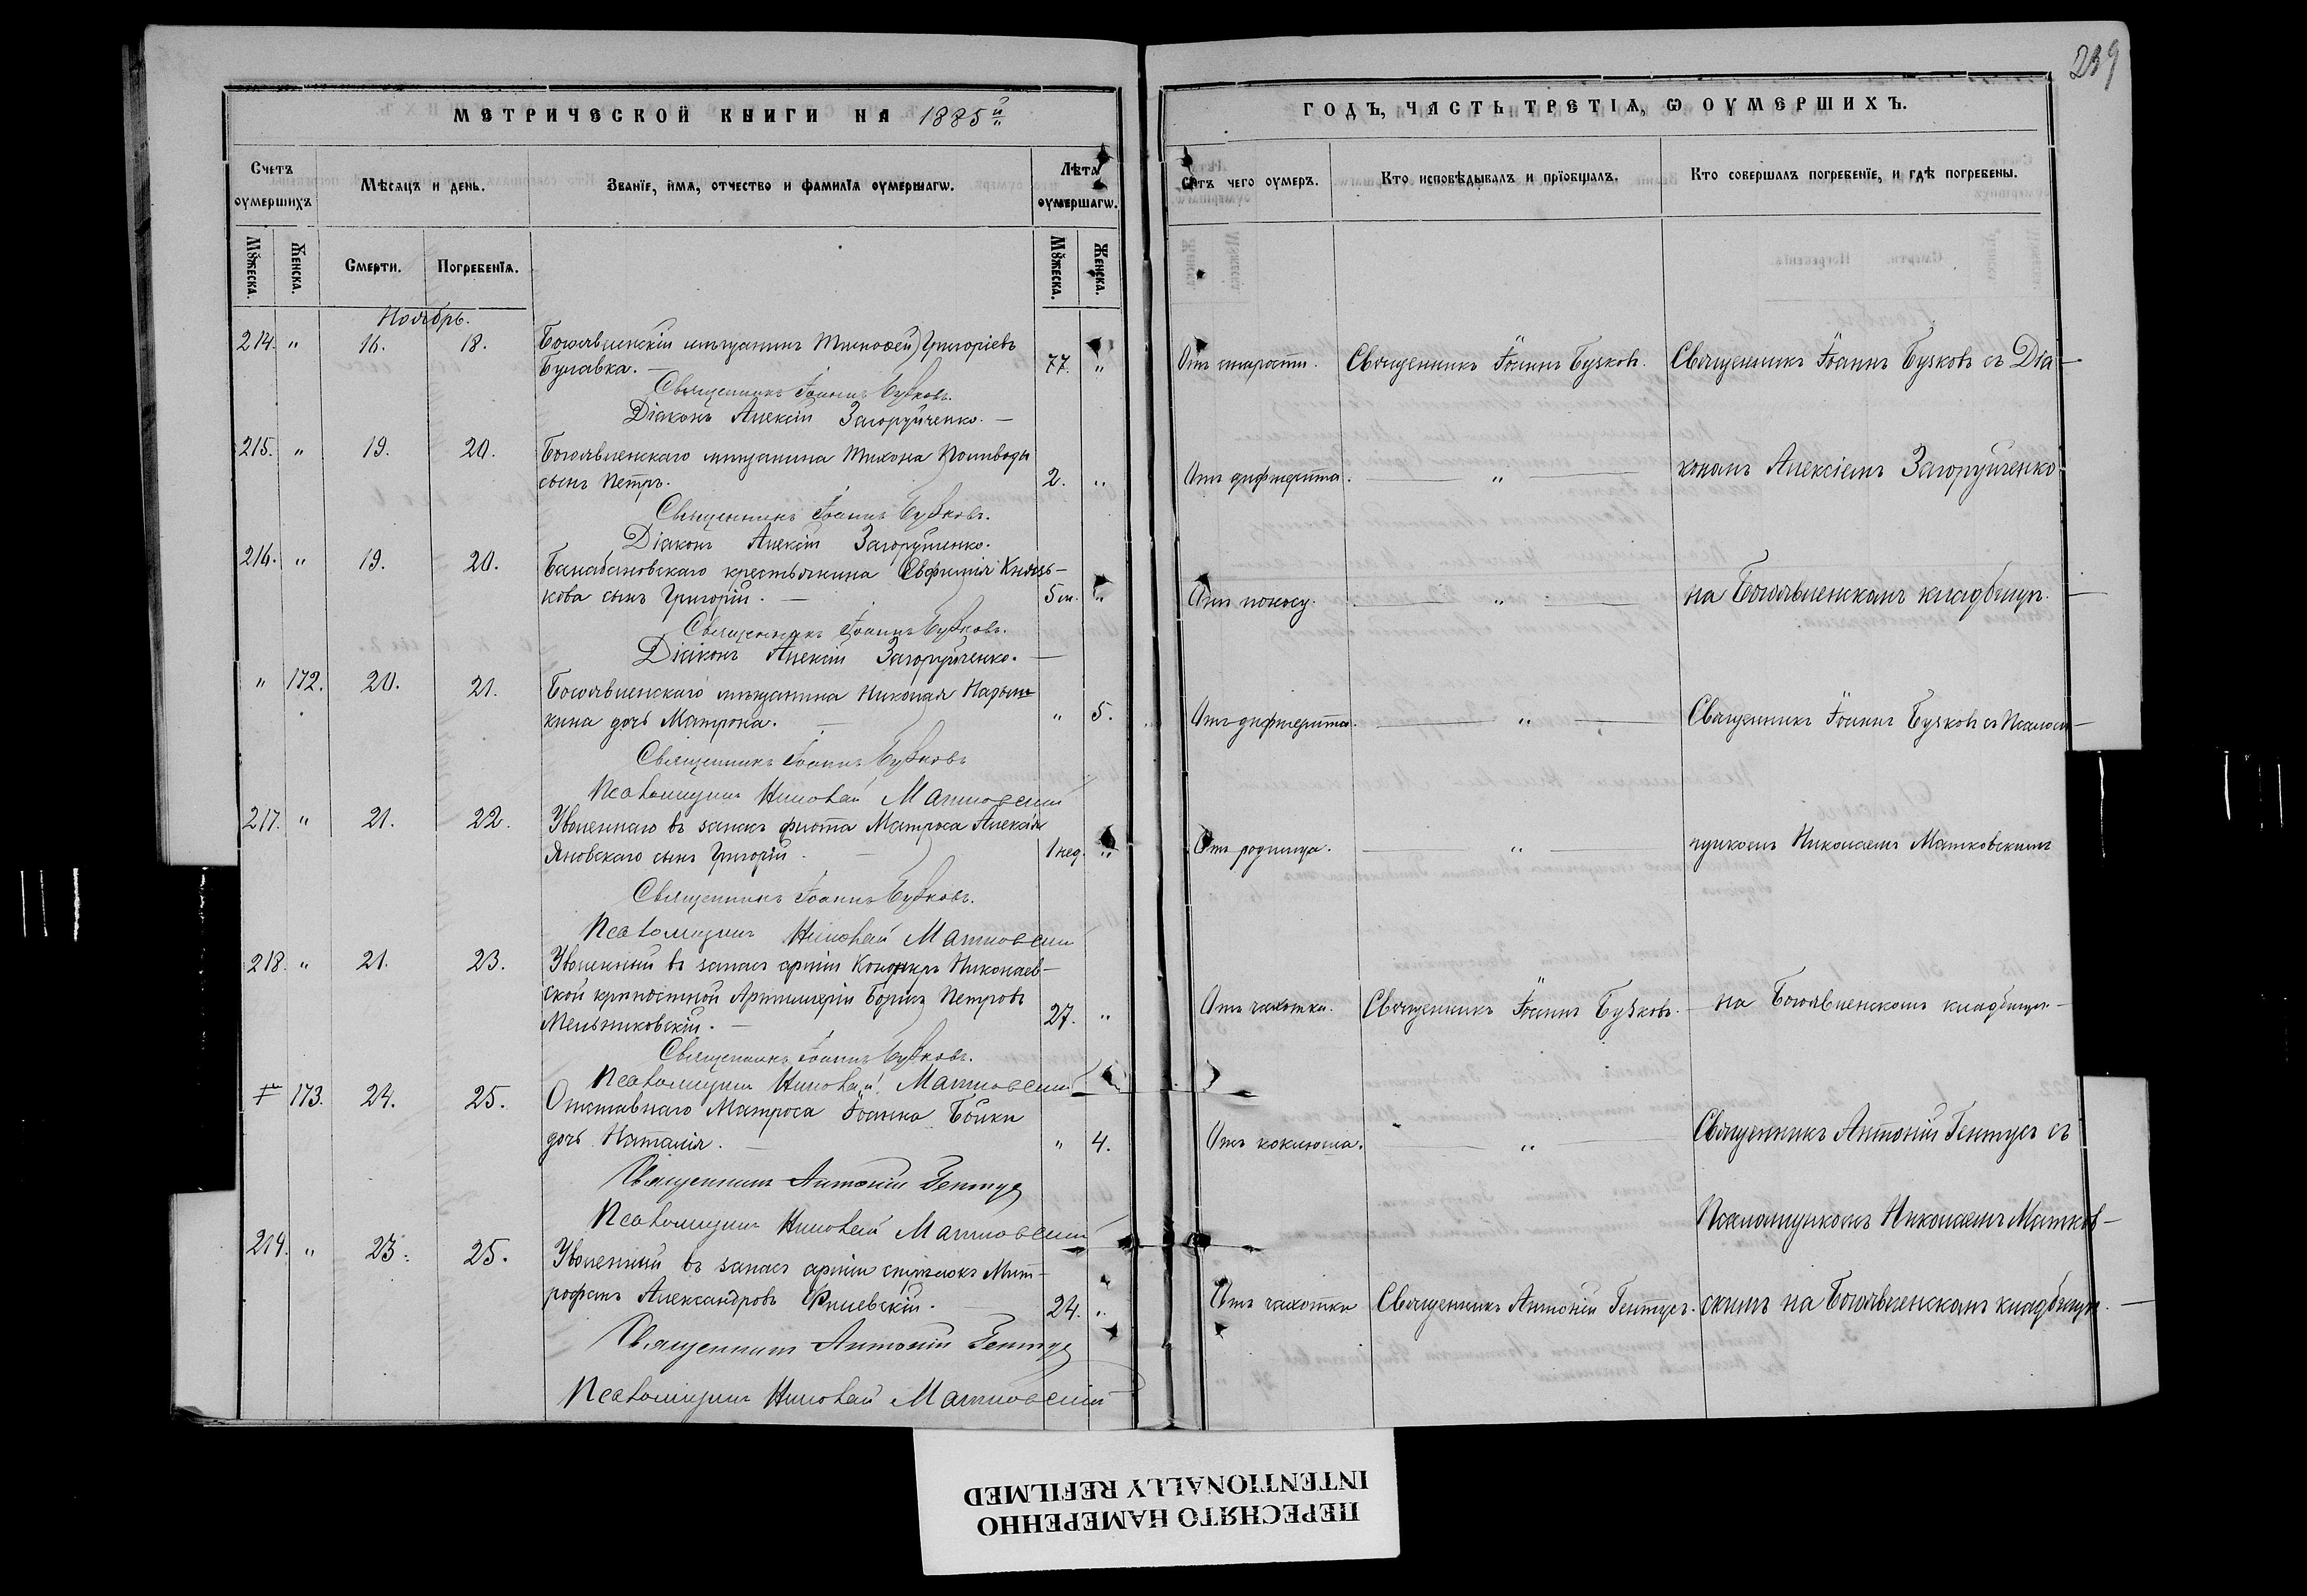 239
МЕТРИЧЕСКОЙ КНИГИ НА 1885й
Счетъ оумершихъ
Мѣсяцъ и день.
Званїе, имя, отчество и фамилїя оумершагѡ.
Лѣта оумершагѡ.
Мꙋжеска.
Женска.
Смерти.
Погребенїя.
Мꙋжеска.
Женска.
Ноябрь.
214. " 16. 18. Богоявленскій мѣщанинъ Тимофей Григоріевъ
Булавка. — 77. "
Священникъ Іоаннъ Бузковъ.
Діаконъ Алексій Загоруйченко. —
215. " 19. 20. Богоявленскаго мѣщанина Тихона Поливоды
сынъ Петръ. 2. "
Священникъ Іоаннъ Бузковъ.
Діаконъ Алексій Загоруйченко.
216. " 19. 20. Балабановскаго крестьянина Евфимія
кова сынъ Григорій. — 5 м. "
Священникъ Іоаннъ Бузковъ.
Діаконъ Алексій Загоруйченко. —
" 172. 20. 21. Богоявленскаго мѣщанина Николая Нарыш-
кина дочь Матрона. — " 5.
Священникъ Іоаннъ Бузковъ
Псаломщикъ Николай Матковскій
217. " 21. 22. Уволеннаго въ запасъ флота Матроса Алексѣя
Яновскаго сынъ Григорій. — 1 нед. "
Священникъ Іоаннъ Бузковъ.
Псаломщикъ Николай Матковскій
218. " 21. 23. Уволенный въ запасъ арміи Канониръ Николаев-
ской крѣпостной Артиллеріи Борисъ Петровъ
Мельниковскій. — 27. "
Священникъ Іоаннъ Бузковъ.
Псаломщикъ Николай Матковскій
173. 24. 25. Отставнаго Матроса Іоанна Бойки
дочь Наталія. — " 4.
Священникъ Антоній Гентусъ
Псаломщикъ Николай Матковскій
219. " 23. 25. Уволенный въ запасъ арміи стрѣлокъ Мит-
рофанъ Александровъ 24. "
Священникъ Антоній Гентусъ
Псаломщикъ Николай Матковскій
ГОДЪ, ЧАСТЬ ТРЕТІЯ, Ѡ ОУМЕРШИХЪ.
Ѿтъ чего оумеръ.
Кто исповѣдывалъ и прїобщалъ.
Кто совершалъ погребенїе, и гдѣ погребены.
Отъ старости. Священникъ Іоаннъ Бузковъ. Священникъ Іоаннъ Бузковъ съ Діа-
Отъ дифтерита. — " — кономъ Алексіемъ Загоруйченко
Отъ поносу. — " — на Богоявленскомъ кладбищѣ. —
Отъ дифтерита. — " — Священникъ Іоаннъ Бузковъ съ Псалом-
Отъ родимца. — " — щикомъ Николаемъ Матковскимъ
Отъ чахотки. Священникъ Іоаннъ Бузковъ. — на Богоявленскомъ кладбищѣ —
Отъ коклюша. — " — Священникъ Антоній Гентусъ съ
Псаломщикомъ Николаемъ Матков-
Отъ чахотки Священникъ Антоній Гентусъ. скимъ на Богоявленскомъ кладбищѣ. —
INTENTIONALLY REFILMED
ПЕРЕСНЯТО НАМЕРЕННО